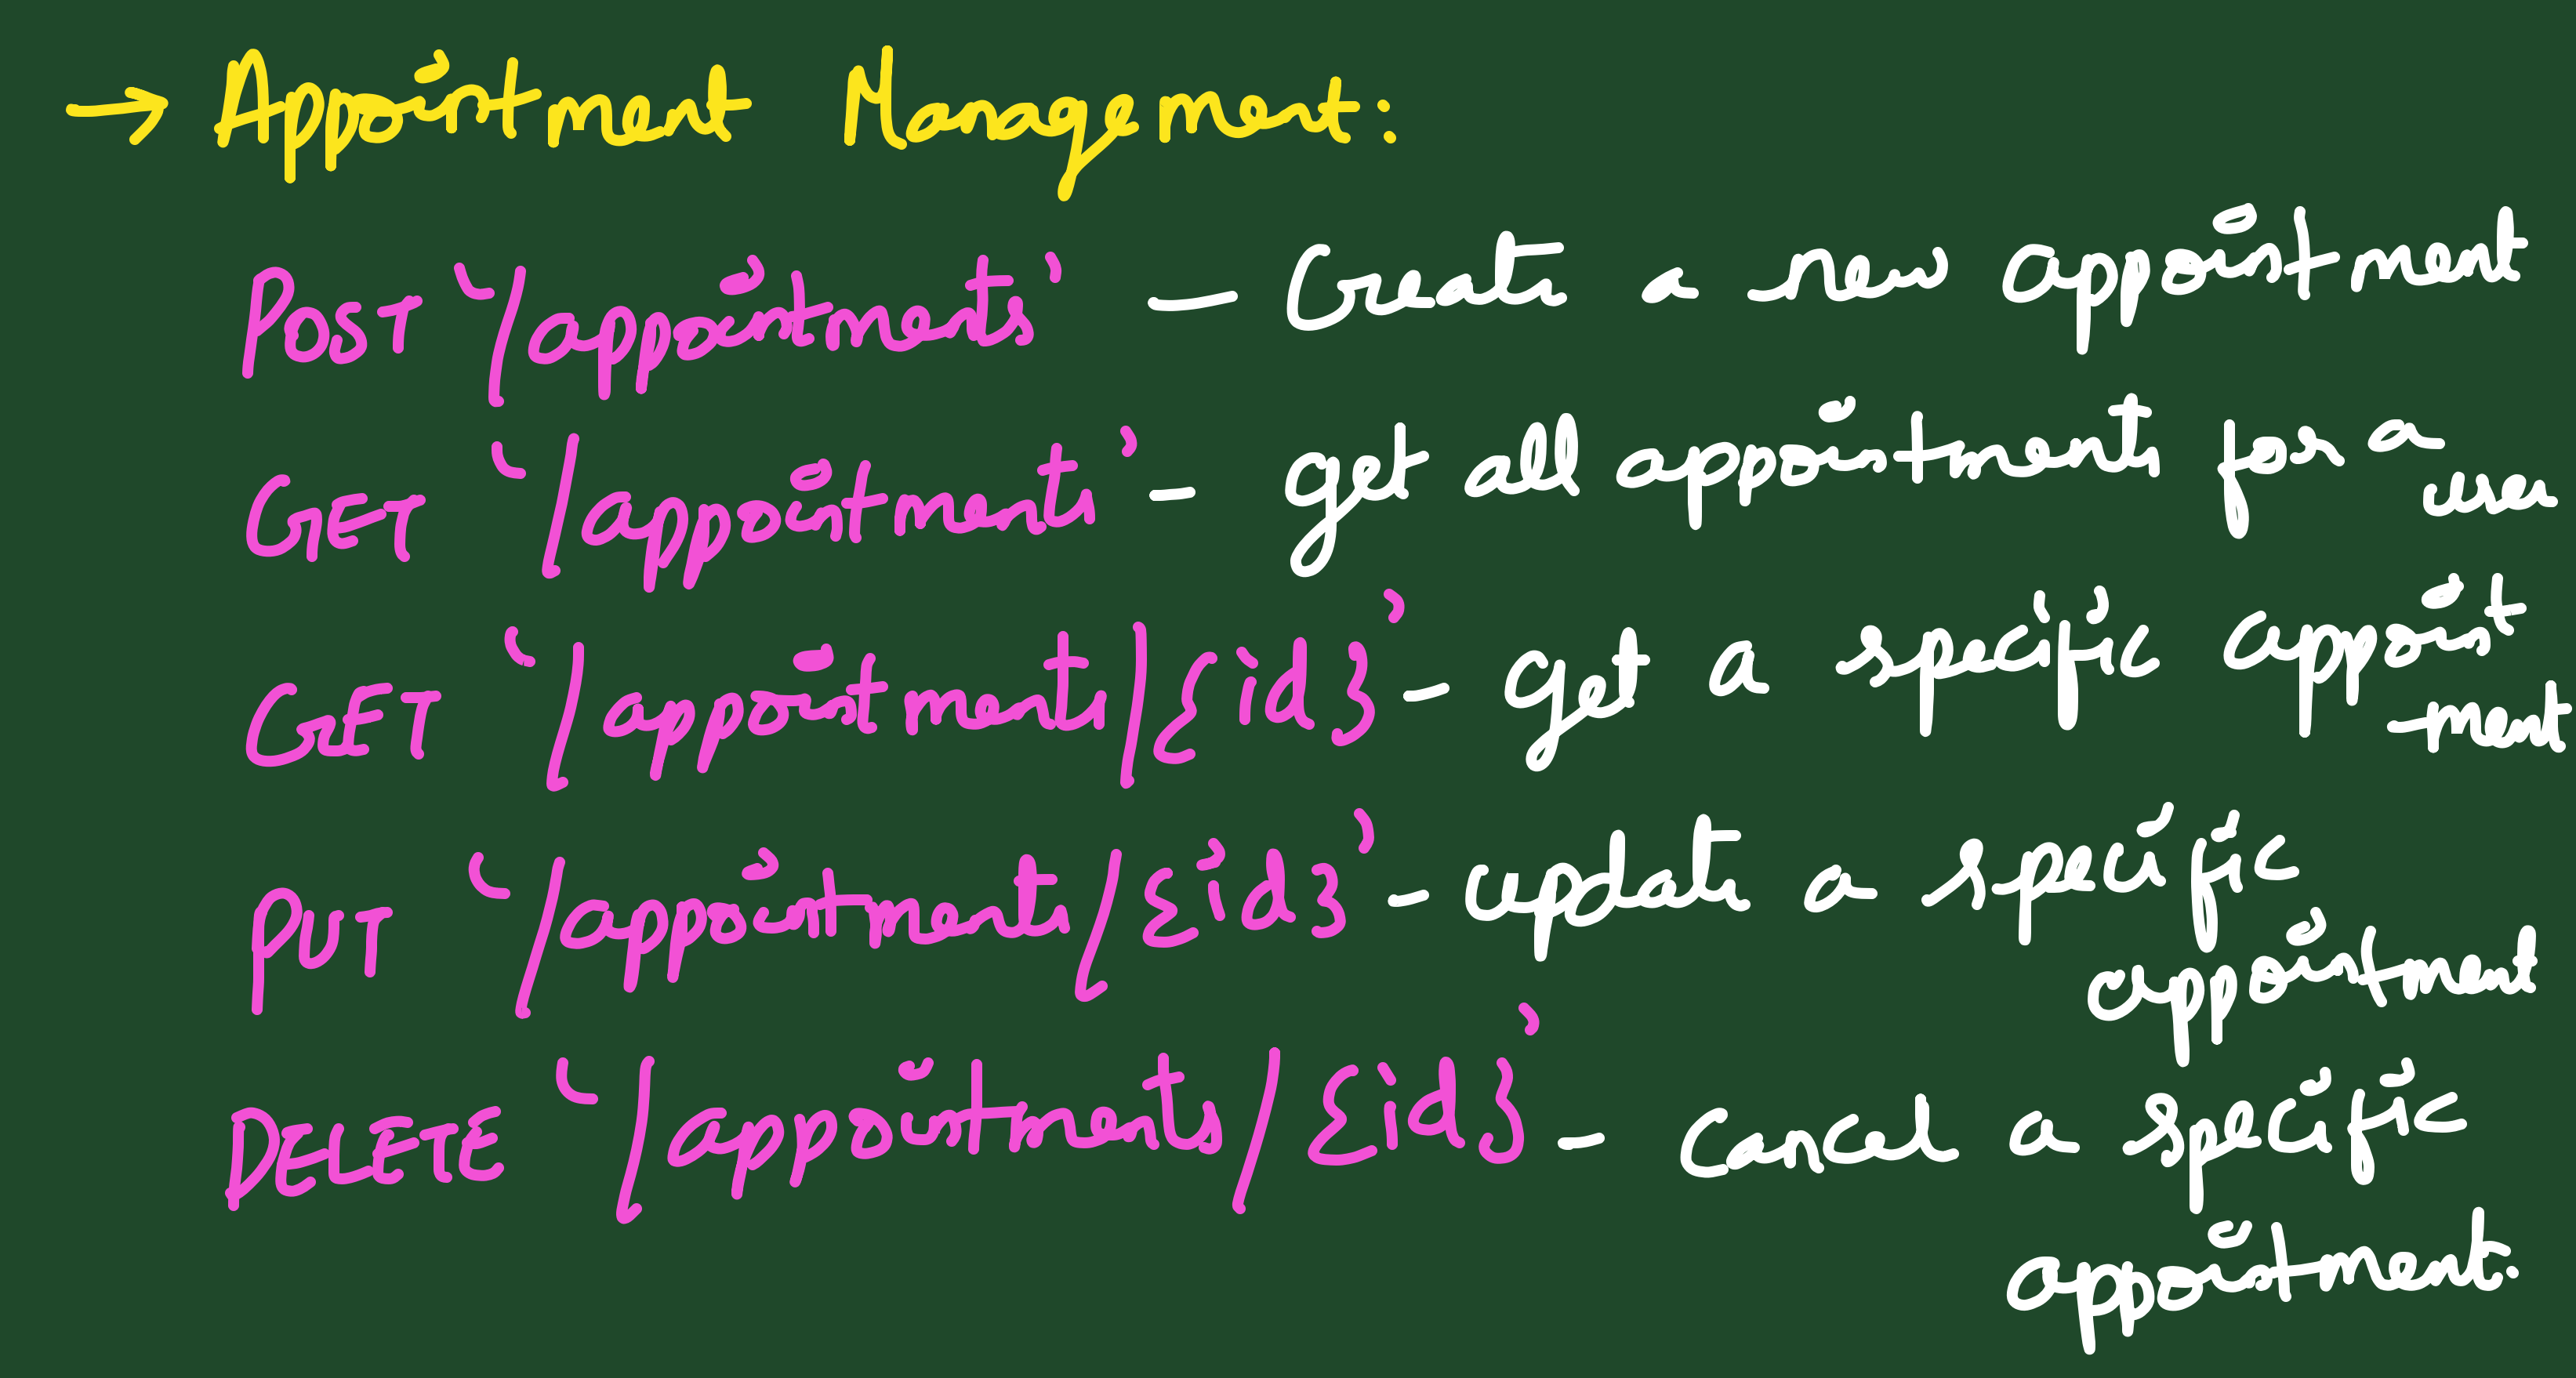 → Appointment Management:
POST '/appointments' — Create a new appointment
GET '/appointments' - get all appointments for a
user
GET '/appointments/{id}' - get a specific appoint
-ment
PUT '/appointments/{id}' - update a specific
appointment
DELETE '/appointments/{id}' - cancel a specific
appointment.